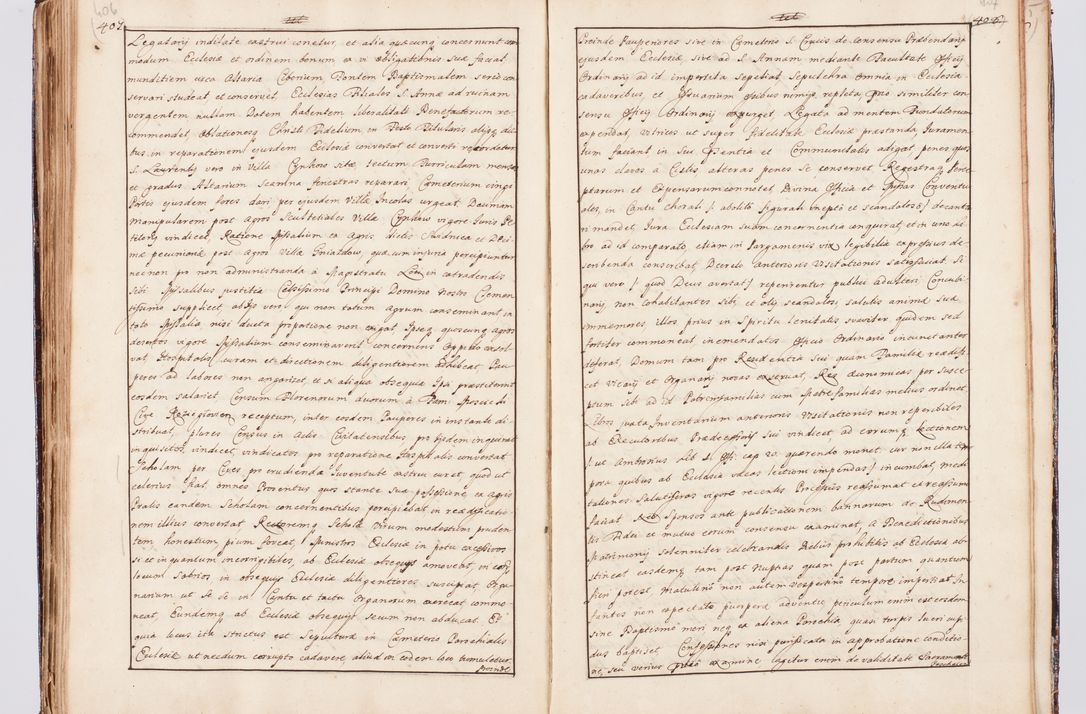 407
Legatarij inditate castrui conetur, et alia quæcunq concernunt com
modum Ecclesiæ et ordinem bonum ex vi obligationis suæ faciat
munditiem circa Altaria Ciborium Fontem Baptismalem serio con
servari studeat, et conservet, Ecclesias Filiales S. Annæ ad ruinam
vergentem nullam Dotem habentem liberalitati Benefactorum re
commendet, oblationesq Christi Fidelium in Festo Titularis aliisq die
bus in reparationem ejusdem Ecclesiæ convertat et converti
S. Laurentij vero in Villa Cynkow sitæ tectum Turriculam
et gradus Altarium scamna fenestras reparari, Cæmeterium cingi
Portis ejusdem fores dari per ejusdem Villæ Incolas urgeat, Decimam
manipularem post agros Scultetiales Villæ Cynkow vigore Juris
vindicet, Ratione Missalium ex Agris dictis et Deci
mæ pecuniariæ post Agros Villæ Gniazdow, quæ cum injuria percipiuntur
nec non pro non administranda à Magistratu in contradendis
sibi Missalibus justitia Celsissimo Principi Domino Nostro Clemen
tissimo supplicet, ab ijs vero qui non totum agrum conseminant in
toto Missalia nisi ducta proportione non exigat, Ipseq quoscunq agros
desertos vigore Missalium conseminaverit concernens Oppido resol
vat, Hospitalis curam et directionem diligentiorem adhibeat Pau
peres ad labores non angorizet, et si aliqua obsequia Ipsi præstiterint
eosdem salariet, Censum Florenorum duorum à Fam:
Cive receptum, inter eosdem Pauperes in instante di
stribuat, plures Census in Actis Civitatensibus pro ijsdem inquirat
inquisitos, vindicet, vindicatos pro reparatione Hospitalis convertat
Scholam per Cives pro erudienda Juventute castrui curet, quod ut
celerius fiat, omnes Proventus quos stante sua possessione ex Agris
Pralis eandem Scholam concernentibus percipiebat in reædificatio
nem illius convertat, Rectoremq Scholæ Virum modestum pruden
tem honestum, pium foveat, Ministros Ecclesiæ in potu excessivos
si et in quantum incorrigibiles, ab Ecclesiæ obsequijs amoveat, in eorum
locum sobrios, in obsequijs Ecclesiæ diligentiores suscipiat, Orga
narium ut se se in Cantu et tactu Organorum exerceat commo
neat, Eundemq ab Ecclesiæ obsequijs secum non abducat Et
quia locus ita strictus est Sepulturæ in Cæmeterio Parochialis
Ecclesiæ ut necdum corrupto cadavere, aliud in eodem loco tumuletur,
Proinde
408
Proinde Pauperiores sive in Cæmeterio S. Crucis de consensu Præbendarij
ejusdem Ecclesiæ, sive ad S. Annam mediante Facultate Officij
Ordinarij ad id impertita sepeliat, Sepulchra omnia in Ecclesia
cadaveribus, et Ossuarium Ossibus nimis, repleta, pro similiter con
sensu Officij Ordinarij expurget, Legata ad mentem Fundatorum
expendat, Vitricos ut super fidelitate Ecclesiæ præstanda Juramen
tum faciant in sui Præsentia et Communitatis adigat, penes quos
unas claves à Cistis, alteras penes se conservet Regestraq Perce
ptarum et Expensarum connotet, Divina Officia et Missas Conventu
ales, in Cantu chorali /: abolito figurali inepto et scandaloso :/ decanta
ri mandet, Jura Ecclesiam suam concernentia conquirat, et in uno li
bro ad id comparato, etiam in Pargamenis vix legibilia expressius de
scribenda conscribat, Decretis anterioris Visitationis satisfaciat. Si
qui vero /: quod Deus avertat :/ reperirentur publici adulteri Concubi
narij, non cohabitantes sibi et alij scandalosi salutis animæ suæ
immemores illos prius in Spiritu lenitatis suaviter quidem sed
fortiter commoneat, inemendatos Officio Ordinario in
deferat, Domum tam pro Residentia sui quam Familiæ reædifi
cet Vicarij et Organarij novas exstruat, Res æconomicas per susce
ptum sibi ad id Patremfamilias cum Matrefamilias melius ordinet
Libros juxta Inventarium anterioris Visitationis non reperibiles
ab Executoribus Prædecessoris sui vindicet, ad eorumq lectionem
/: ut Ambrosius Lib. 1. Offi: cap 20. quærendo monet, cur non illa tem
pora quibus ab Ecclesia vacas lectioni impendas :/ incumbat, medi
tationes salutiferas vigore recentis Processus reassumat, et reassumi
faciat Sponsos ante publicationem bannorum de Rudimen
tis Fidei et mutuo eorum consensu examinet, à Benedictionibus
Matrimonij solenniter celebrandis Diebus prohibitis ab Ecclesia ab
stineat easdemq tam post Nuptias quam post partum quantum
fieri potest, Matutino non autem Vespertino tempore impertiat In
fantes non expectato puerperæ adventu periculum enim est eosdem
sine Baptismo mori neq ex aliena Parochia quasi torpis fueri
dus baptiset, Confessiones nisi purificata in approbatione conditio
ne, seu verius præs examine legitur enim de validitate Sacramenti